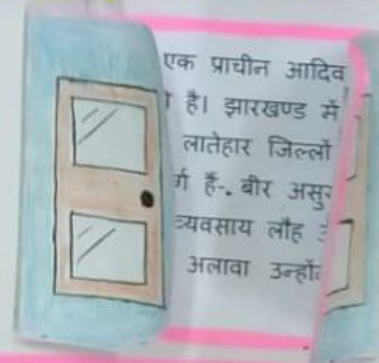 एक प्राचीन आदिव
है। झारखण्ड में
लातेहार जिल्लों
हैं-. बीर असुर
व्यवसाय लौह
अलावा उन्हों